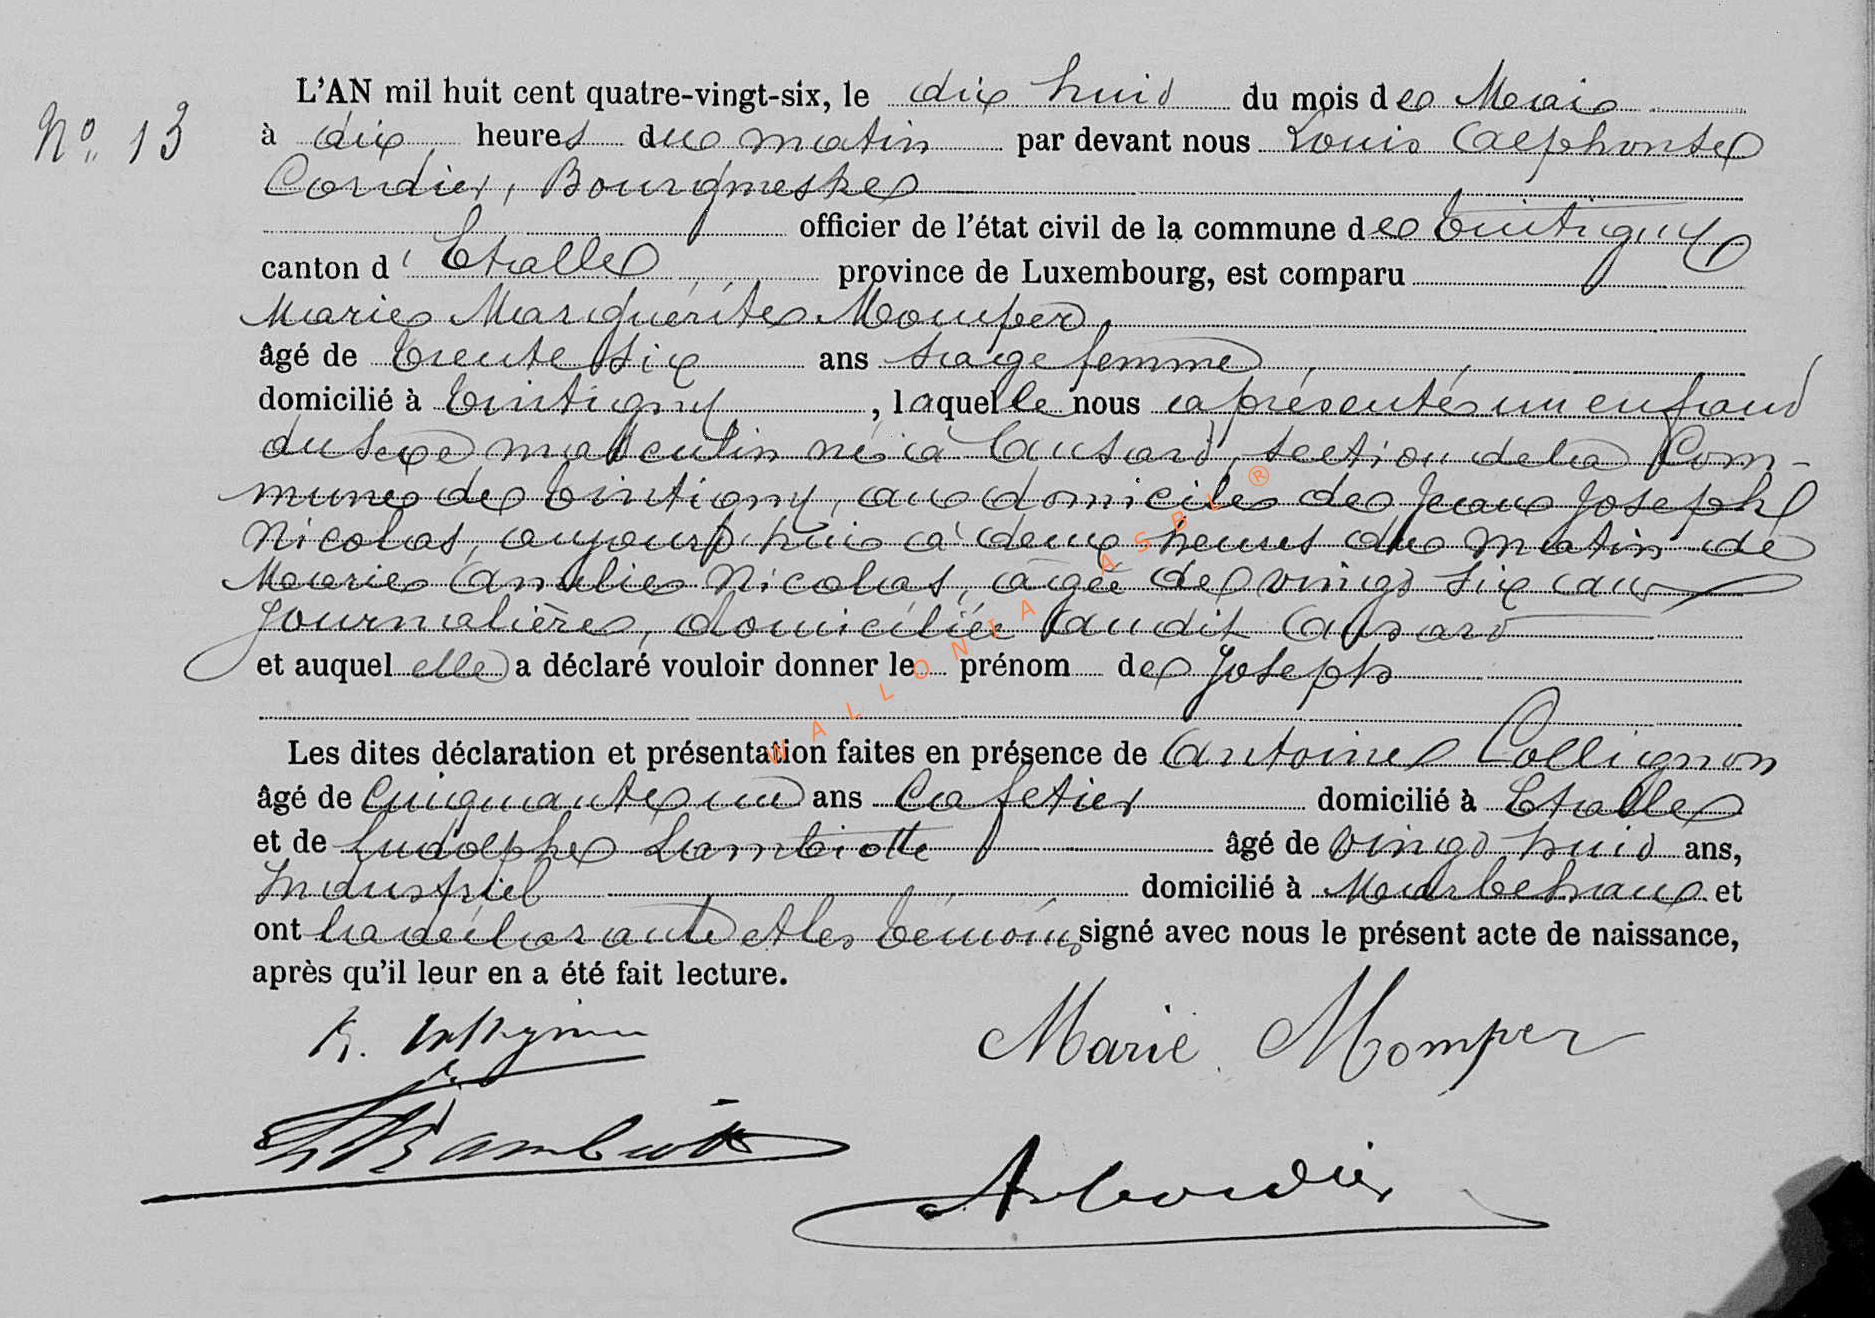 N° 13
L'AN mil huit cent quatre-vingt-six, le dix huit du mois de Mars
à dix heures du matin par devant nous Louis Alphonse
Cordier, Bourgmestre
officier de l'état civil de la commune de Tintigny
canton d'Etalle province de Luxembourg, est comparu
Marie Marguérite Momper,
âgé de trente six ans sage femme,
domicilié à Tintigny, laquelle nous a présenté un enfant
du sexe masculin né à Ansart, section de la Com-
mune de Tintigny, au domicile de Jean Joseph
Nicolas, aujourd'hui à deux heures du matin de
Marie Amélie Nicolas, âgée de vingt six ans
journalière, domiciliée audit Ansart
et auquel elle a déclaré vouloir donner le prénom de Joseph
Les dites déclaration et présentation faites en présence de Antoine Collignon
âgé de cinquante un ans Cafetier domicilié à Etalle
et de Ludolphe Lambiotte âgé de vingt huit ans,
Industriel domicilié à Marbehan et
ont la déclarante et les témoins signé avec nous le présent acte de naissance,
après qu'il leur en a été fait lecture.
Marie Momper
Lambiotte
A Cordier
WALLONIA ASBL ®